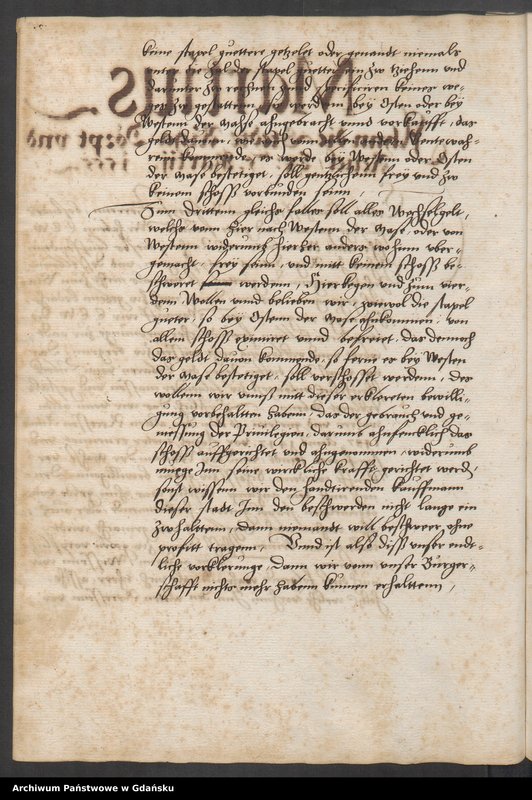 keine stapel guettere getzelet oder genandt niemals
stapel guetter zw ziehenn vnd
darunter zw rechnen vnd specificiren keines we-
ges zw gestatten, so werden bey Osten oder bey
Westenn der Mase ahngebracht vnnd vorkaufft, das
geldt dauon, von
kommende, es werde bey Westenn oder Osten
der Mase bestetiget, soll gentzlichenn frey vnd zw
keinem schoss vorbunden seinn,
Zum drittenn gleichs falles soll alles Wechselgelt,
welchs vonn hier nach Westenn der Mase, oder von
Westenn widerumb hierher anders wohinn vber-
gemacht, frey seinn, vnd mitt keinem schoss be-
schweret werdenn, Hierkegen vnd zum vier-
denn Wollen vnnd belieben wir, zwewol die stapel
gueter, so bey Ostenn der Mase ahnkommen, von
allem schoss eximiret vnnd befreiet, das dennoch
das geldt dauon kommende, so ferne es bey Westen
der Mase bestetiget, soll verschosset werdenn, des
wollenn wir vnns mitt dieser erklereten bewilli-
gung vorbehaltten habenn, das der gebrauch vnd ge-
niessung der Priuilegien, darumb ahnfencklich das
schoss auffgerichtet vnd ahngenommen, widerumb
muege Inn seine wirckliche krafft gerichtet werden,
sonst wissenn wir den handtirenden kauffmann
dieser stadt Inn den beschwerden nicht lange ein
zwhalttenn, dann niemandt will beschweer ohne
profitt tragenn, Vnnd ist also diss vnser endt-
liche vorklerunge, dann wir vonn vnser Burger-
schafft nichts mehr habenn kunnen erhalttenn,
Archiwum Państwowe w Gdańsku